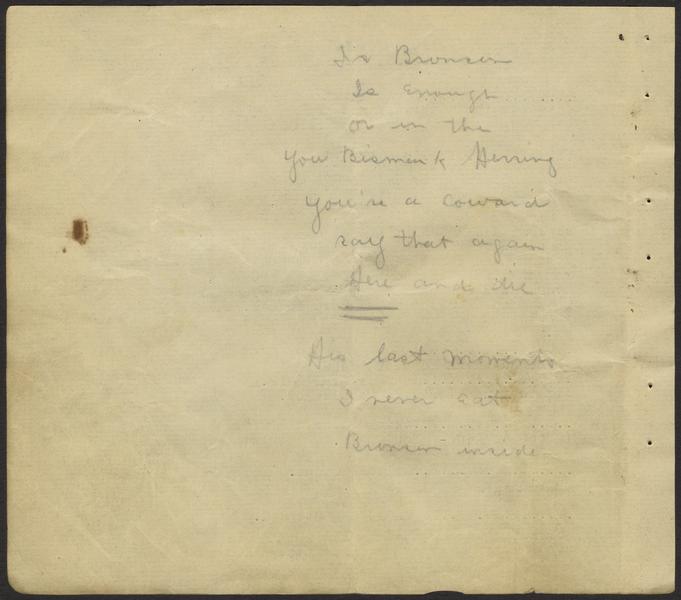 Is Bronson
Is Enough
or in the
You Bismark Herring
You're a coward
say that again
Here and die
His last moments
I never eat
Bronson inside